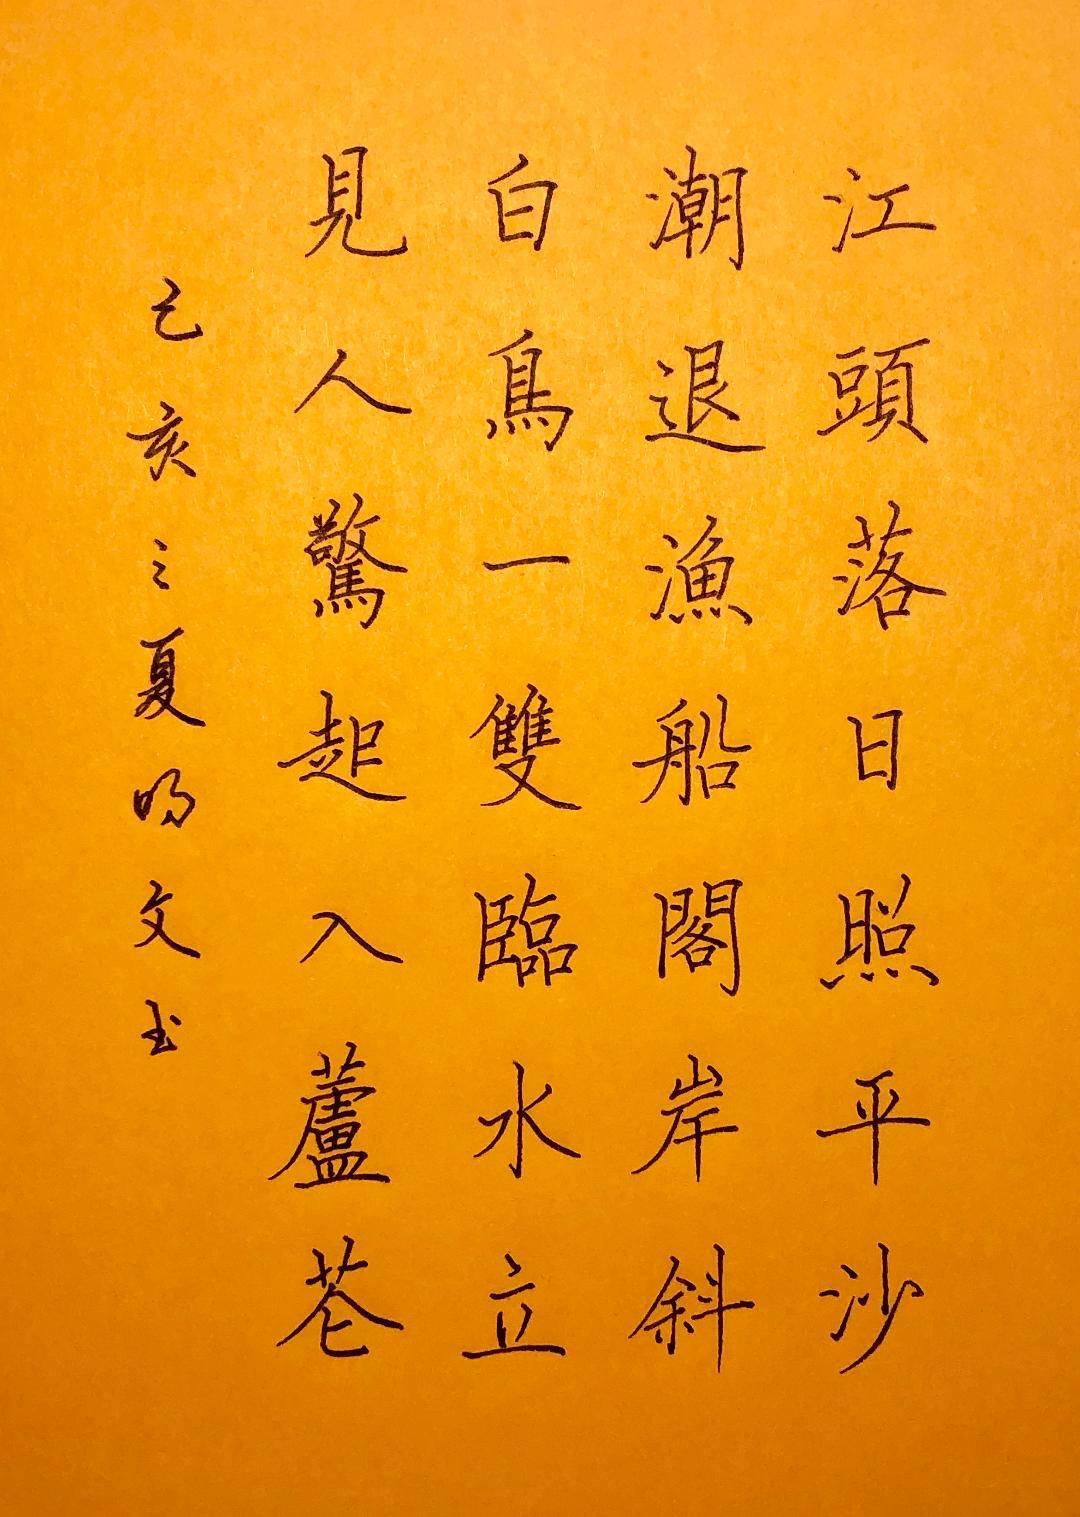 江頭落日照平沙
潮退漁船閣岸斜
白鳥一雙臨水立
見人驚起入蘆花
己亥之夏明文书